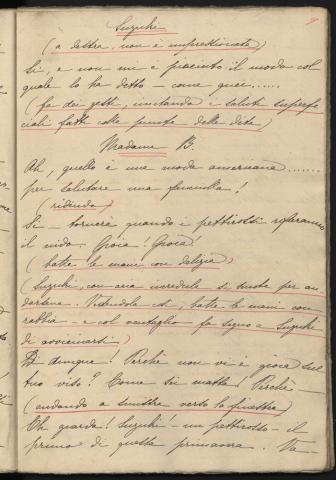 Suzuki
(a destra, non è impressionata)
Sì, e non mi è piaciuto il modo col
quale lo ha detto – come quei......
(fa dei gesti, imitando i saluti superfi
ciali fatti colla punta delle dita)
Madame B.
Ah, quello è una moda americana......
per salutare una fanciulla!
(ridendo)
Sì – tornerà quando i pettirossi rifaranno
il nido. Gioia! Gioia!
(batte le mani con delizia)
(Suzuki, con aria incredula si muove per an
darsene. Vedendola, batte le mani con
rabbia – e col ventaglio fa segno a Suzuki
di avvicinarsi)
Dì dunque! Perchè non vi è gioia sul
tuo viso? Come sei matta! Perchè –
(andando a sinistra verso la finestra)
Oh guarda! Suzuki! – un pettirosso – il
primo di questa primavera. Va-